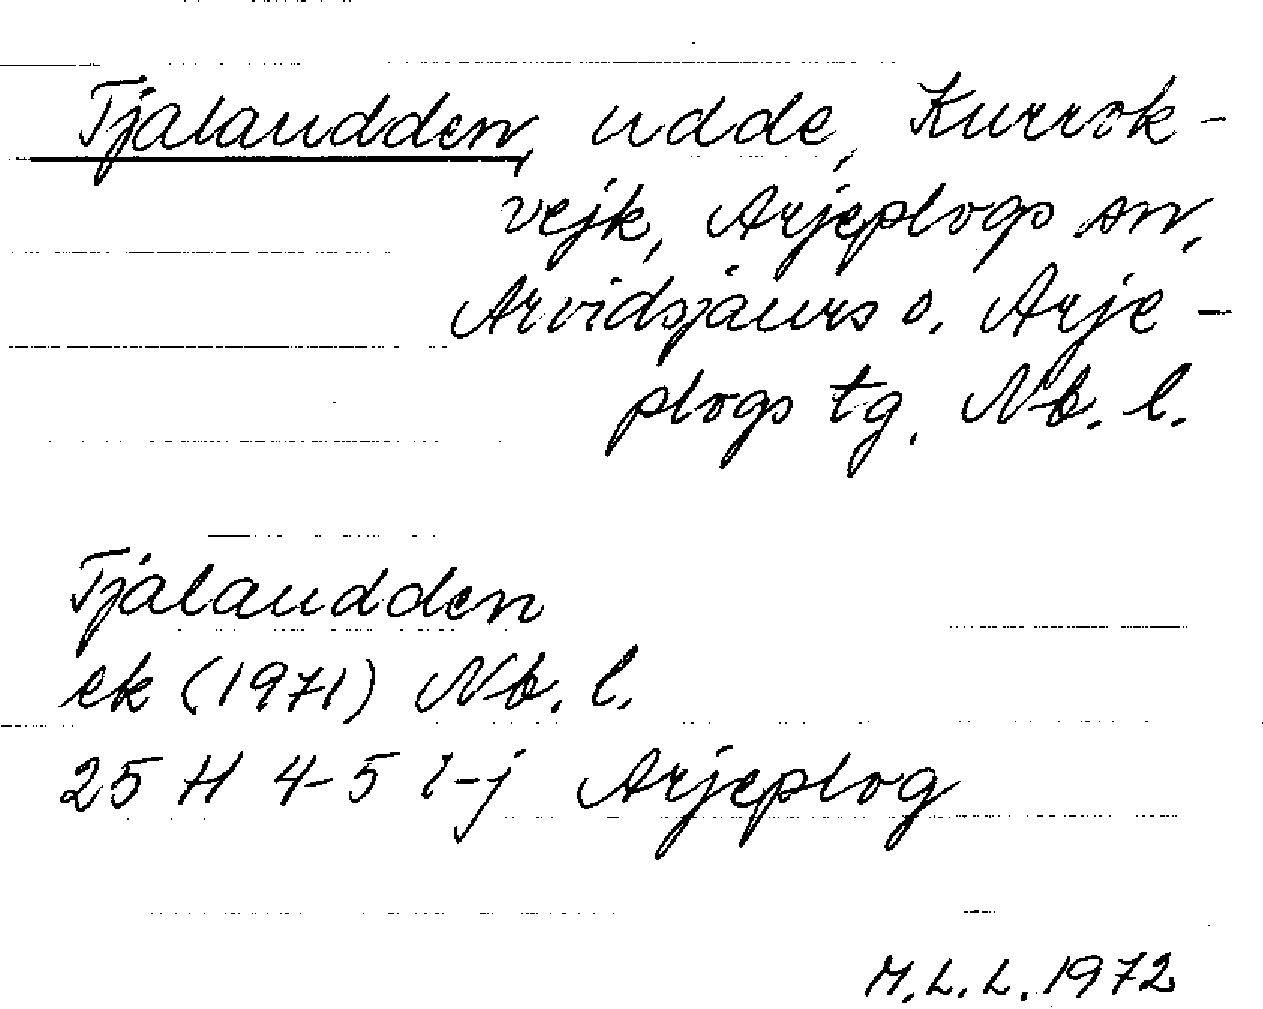 Tjalaudden, udde, Kurrok-
vejk, Arjeplogs sn,
Arvidsjaurs o. Arje-
plogs tg. Nb. l.
Tjalaudden
ek (1971) Nb. l.
25 H 4-5 i-j Arjeplog
M.L.L. 1972